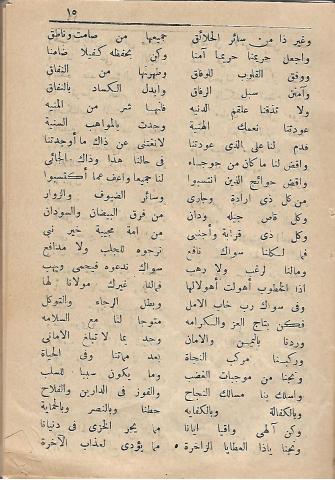 ١٥
وغير ذا من سائر الخلائق جميعها من صامت وناطق
واجعل حريمنا حريما آمنا وكن بحفظه كفيلا ضامنا
ووفق القلوب للوفاق وطهرنها من النفاق
وآمن سبل الرفاق وابدل الكساد بالنفاق
ولا تذقنا علقم الدنيه فانها شر من المنيه
عودتنا نعمك الهنية وجدت بالمواهب السنية
فدم لنا على الذى عودتنا لانغتنى عن ذاك ما أوجدتنا
واقض لنا ما كان من حوجاء فى حالنا هذا وذاك الجائى
واقض حوائج الذين انتسبوا لنا جميعا واعف عما أكتسبوا
من كل ذى ارادة وجارى وسائر الضيوف والزوار
وكل قاص جيله ودان من فرق البيضان والسودان
وكل ذى قرابة وأجنبى من امة محيية خير نبي
فما لكلنا سواك نافع نرجوه للجلب ولا مدافع
ومالنا لرغب ولا رهب سواك ندعوه فيحمى ويهب
اذا الخطوب أهولت أهوالها فمالنا غيرك مولانا لها
وفى سواك رب خاب الامل وبطل الرجاء والتوكل
فكن بتاج العز والكرامه متوجا لنا مع السلامه
وردنا باليمن والامان وجد بما لا تبلغ الامانى
وركبنا مركب النجاة بعد مماتنا وفى الحياة
ونجنا من موجبات الغضب وما يكون سببا للسلب
واسلك بنا مسالك النجاح والفوز فى الدارين والفلاح
وبالكفالة وبالكفايه حطنا وبالنصر وبالحماية
وكن آلهى واقيا ايانا مما يجر الخزى فى دنيانا
ونجنا باذا العطايا الزاخرة مما يؤدى لعذاب الآخرة